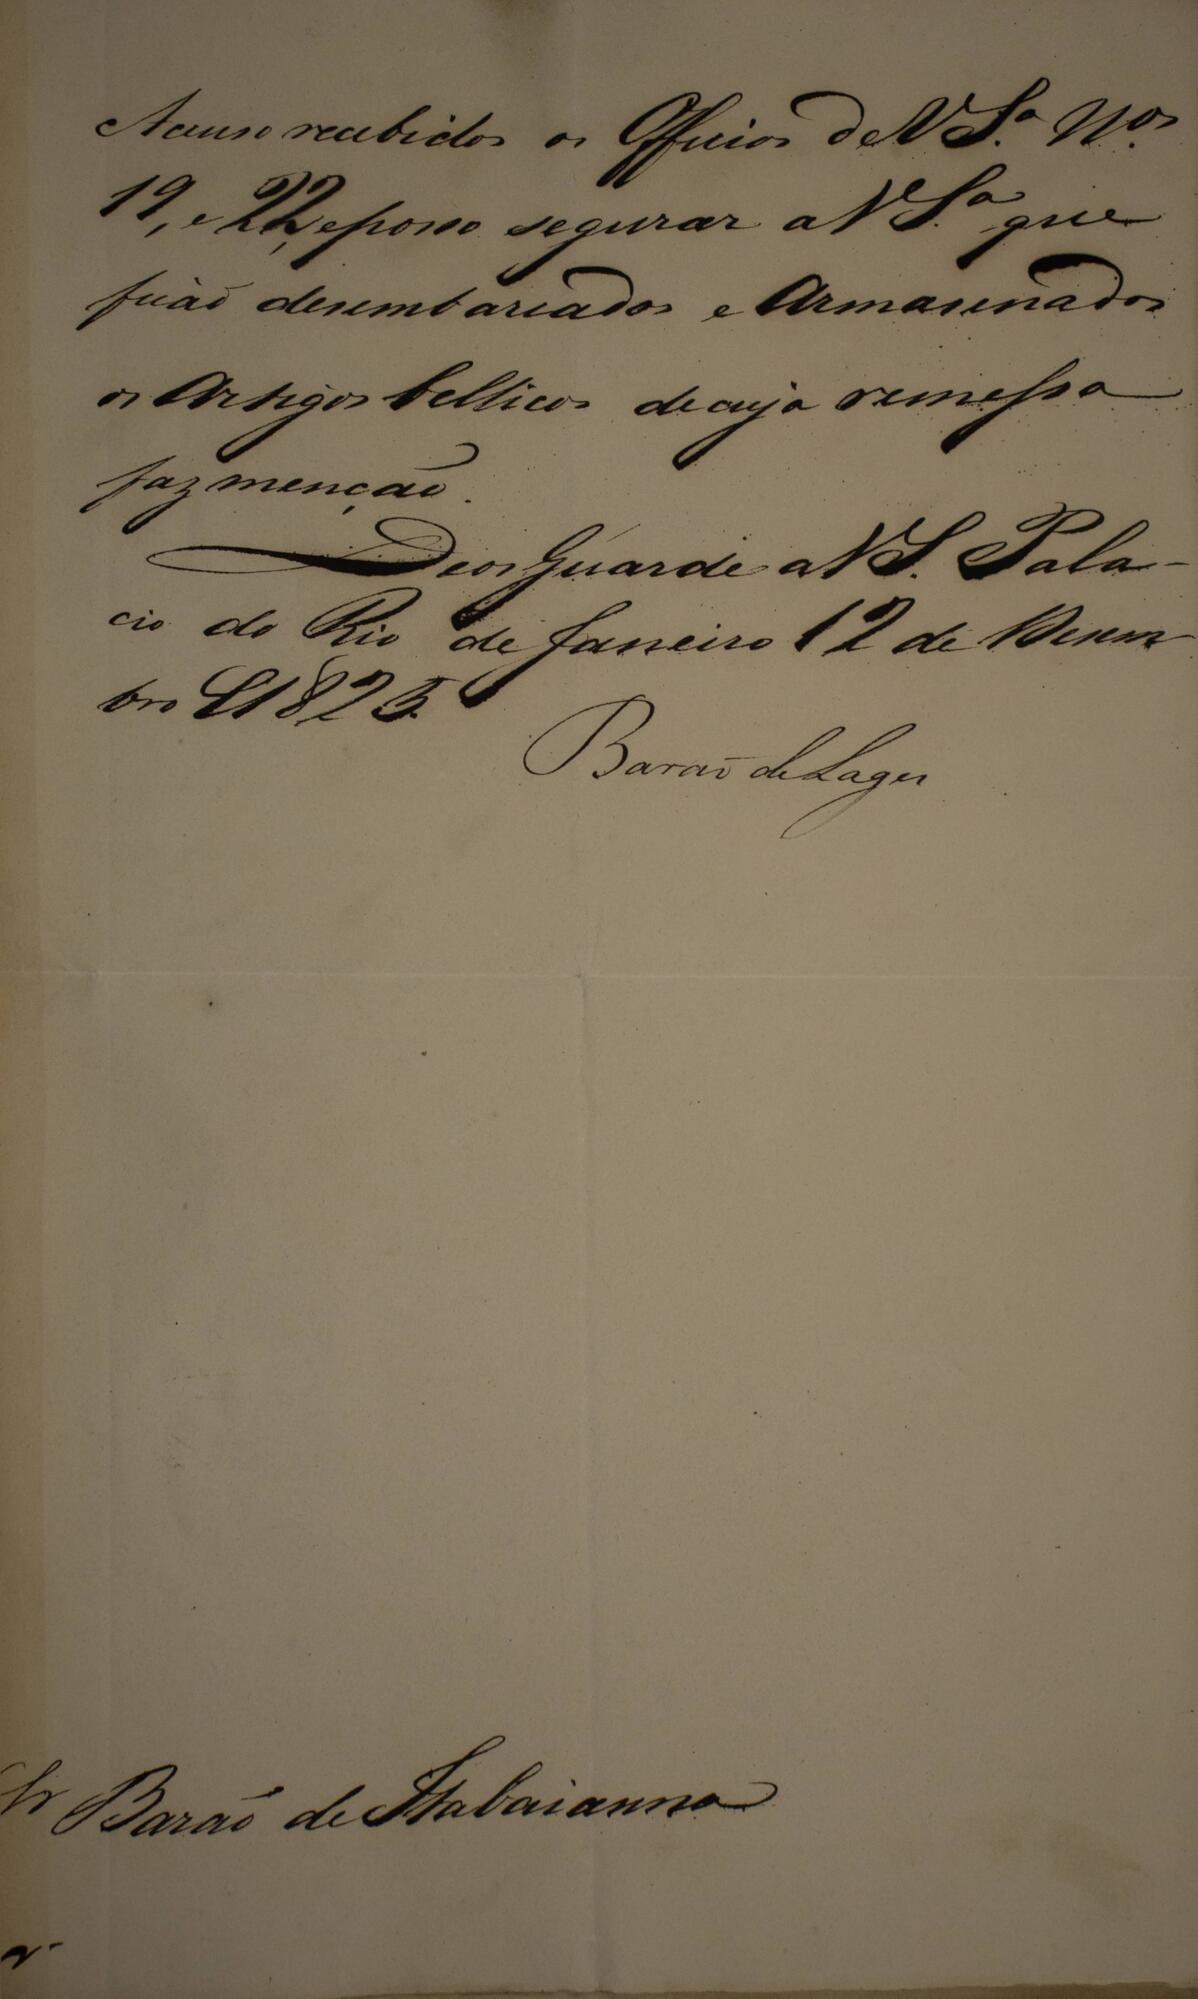 Acuso recebidos os Officios de V S.ª N.os
19, e 22, e posso segurar a V S.ª que
ficaõ desembarcados e Armasenados
os Artigos bellicos de cuja remessa
faz mençaõ.
Deos Guarde a V S. Pala-
cio do Rio de Janeiro 12 de Dezem
bro de 1825.
Baraõ de Lages
Sr Baraõ de Itabaianna